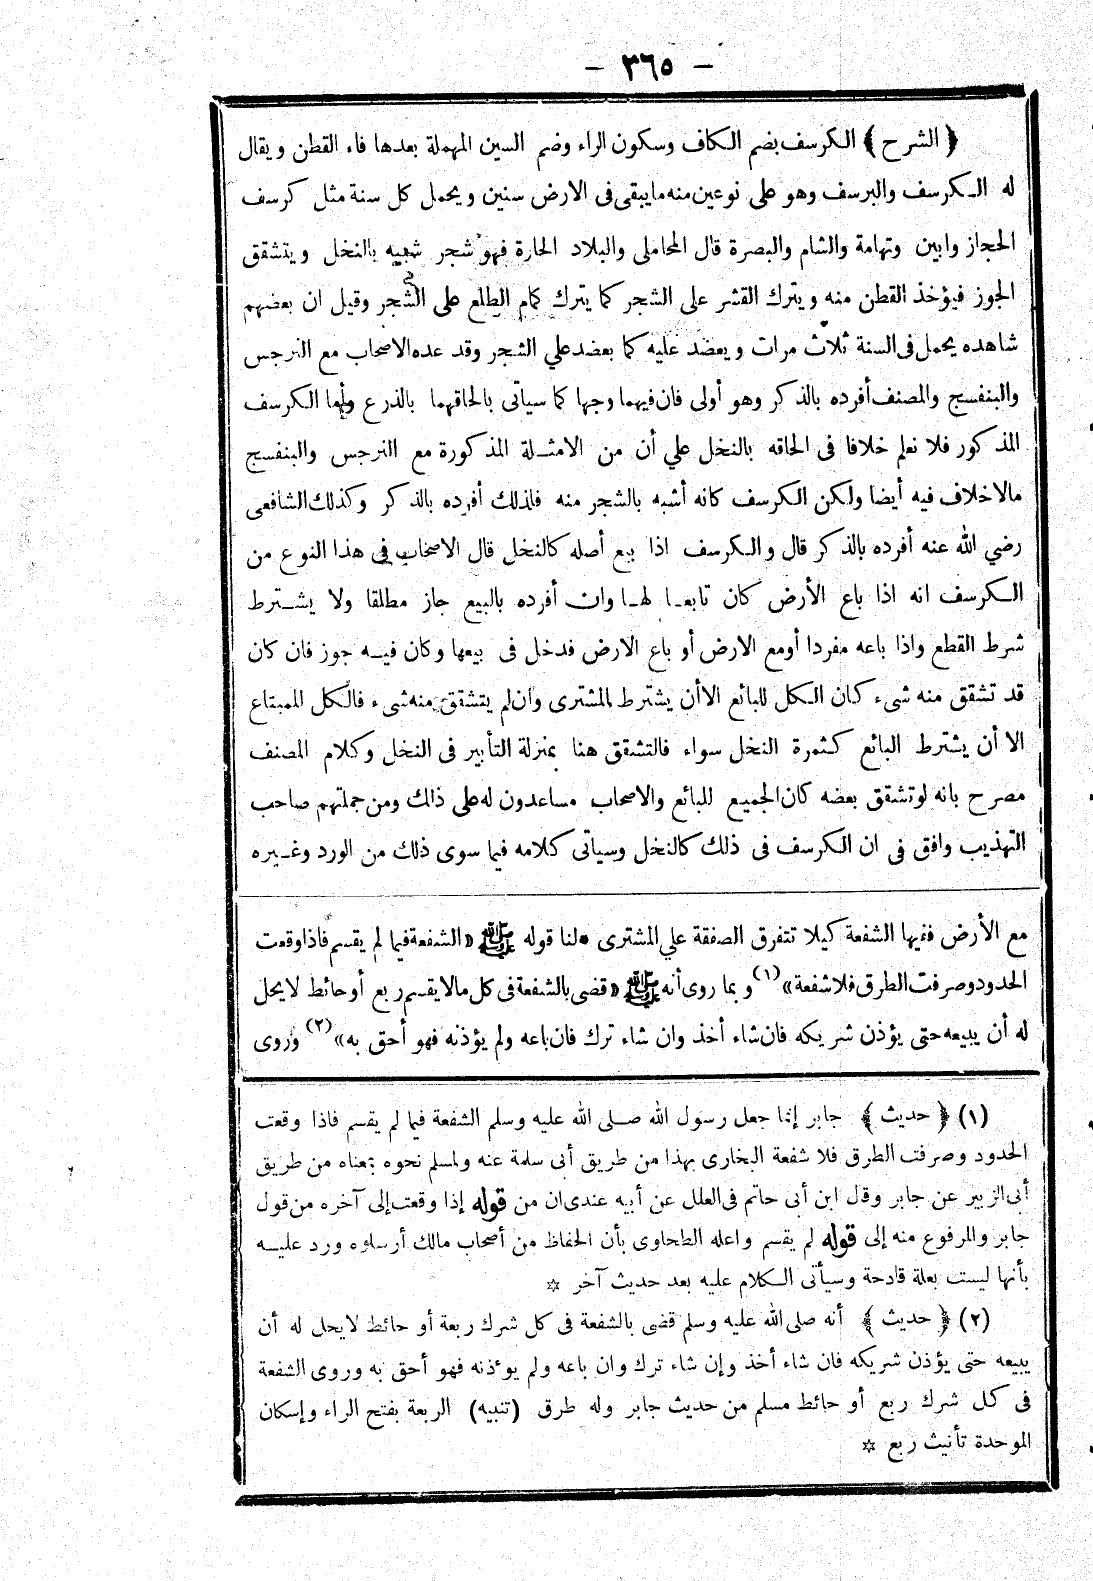 – ٣٦٥ –
﴿ الشرح ﴾ الكرسف بضم الكاف وسكون الراء وضم السين المهملة بعدها فاء القطن ويقال
له الكرسف والبرسف وهو على نوعين منه ما يبقى فى الارض سنين ويحمل كل سنة مثل كرسف
الحجاز وابين وتهامة والشام والبصرة قال المحاملى والبلاد الحارة فهو شجر شبيه بالنخل ويتشقق
الجوز فيؤخذ القطن منه ويترك القشر على الشجر كما يترك كمام الطلع على الشجر وقيل ان بعضهم
شاهده يحمل فى السنة ثلاث مرات ويعضد عليه كما بعضد علي الشجر وقد عده الاصحاب مع النرجس
والبنفسج والمصنف أفرده بالذكر وهو أولى فان فيهما وجها كما سيأتى بالحاقهما بالذرع وأما الكرسف
المذكور فلا نعلم خلافا فى الحاقه بالنخل علي أن من الامثلة المذكورة مع النرجس والبنفسج
مالاخلاف فيه أيضا ولكن الكرسف كانه أشبه بالشجر منه فلذلك أفرده بالذكر وكذلك الشافعى
رضي الله عنه أفرده بالذكر قال والكرسف اذا بيع أصله كالنخل قال الاصحاب فى هذا النوع من
الكرسف انه اذا باع الأرض كان تابعا لها وان أفرده بالبيع جاز مطلقا ولا يشترط
شرط القطع واذا باعه مفردا أومع الارض أو باع الارض فدخل فى بيعها وكان فيه جوز فان كان
قد تشقق منه شىء كان الكل للبائع الاأن يشترط المشترى وان لم يتشقق منه شىء فالكل للمبتاع
الا أن يشترط البائع كثمرة النخل سواء فالتشقق هنا بمنزلة التأبير فى النخل وكلام المصنف
مصرح بانه لوتشقق بعضه كان الجميع للبائع والاصحاب مساعدون له على ذلك ومن جملتهم صاحب
التهذيب وافق فى ان الكرسف فى ذلك كالنخل وسيأتى كلامه فيما سوى ذلك من الورد وغيره
مع الأرض ففيها الشفعة كيلا تتفرق الصفقة علي المشترى * لنا قوله ﷺ «الشفعة فيما لم يقسم فاذا وقعت
الحدود وصرفت الطرق فلا شفعة» (١) وبما روى أنه ﷺ «قضى بالشفعة فى كل مالا يقسم ربع أو حائط لا يحل
له أن يبيعه حتى يؤذن شريكه فان شاء أخذ وان شاء ترك فان باعه ولم يؤذنه فهو أحق به» (٢) وروى
(١) ﴿ حديث ﴾ جابر إنما جعل رسول الله صلى الله عليه وسلم الشفعة فيما لم يقسم فاذا وقعت
الحدود وصرفت الطرق فلا شفعة البخارى بهذا من طريق أبى سلمة عنه ولمسلم نحوه بمعناه من طريق
أبى الزبير عن جابر وقال ابن أبى حاتم فى العلل عن أبيه عندى ان من قوله إذا وقعت إلى آخره من قول
جابر والمرفوع منه إلى قوله لم يقسم واعله الطحاوى بأن الحفاظ من أصحاب مالك أرسلوه ورد عليه
بأنها ليست بعلة قادحة وسيأتى الكلام عليه بعد حديث آخر ✡
(٢) ﴿ حديث ﴾ أنه صلى الله عليه وسلم قضى بالشفعة فى كل شرك ربعة أو حائط لايحل له أن
يبيعه حتى يؤذن شريكه فان شاء أخذ وإن شاء ترك وان باعه ولم يوءذنه فهو أحق به وروى الشفعة
فى كل شرك ربع أو حائط مسلم من حديث جابر وله طرق (تنبيه) الربعة بفتح الراء وإسكان
الموحدة تأنيث ربع ✡